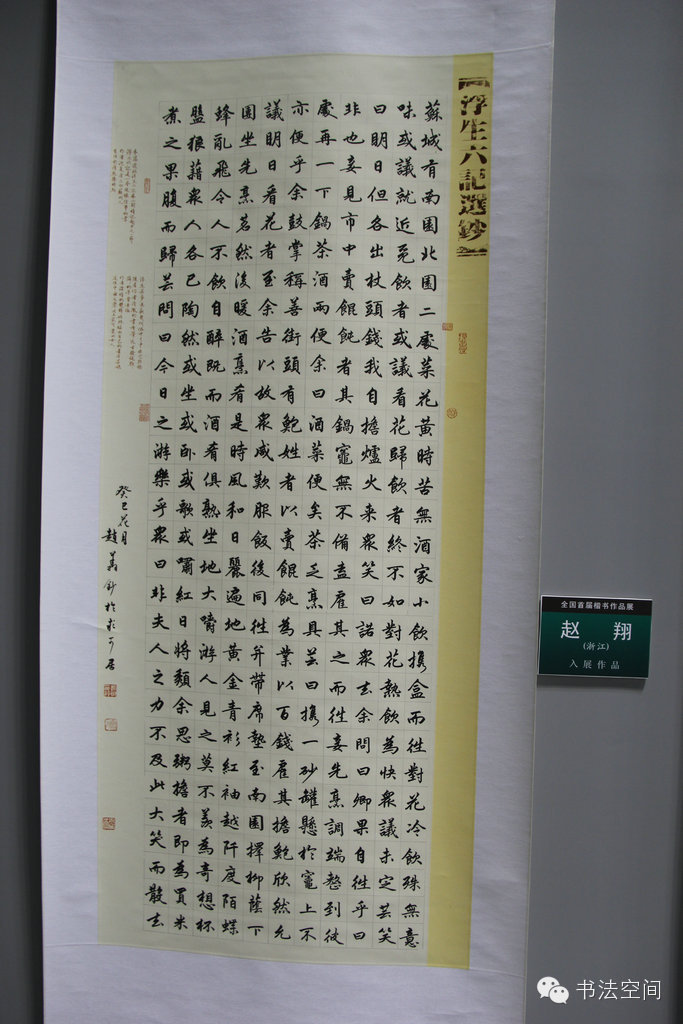 浮生六記選鈔
蘇城有南園北園二處菜花黃時苦無酒家小飲攜盒而往對花冷飲殊無意
味或議就近覓飲者或議看花歸飲者終不如對花熱飲為快衆議未定芸笑
曰明日但各出杖頭錢我自擔爐火来衆笑曰諾衆去余問曰卿果自往乎曰
非也妾見市中賣餛飩者其鍋竈無不備盍雇其之而往妾先烹調端整到彼
處再一下鍋茶酒兩便余曰酒菜便矣茶乏烹具芸曰攜一砂罐懸於竈上不
亦便乎余鼓掌稱善街頭有鮑姓者以賣餛飩為業以百錢雇其擔鮑欣然允
議明日看花者至余告以故衆咸歎服飯後同往并帶席墊至南園擇柳蔭下
團坐先烹茗然後暖酒烹肴是時風和日麗遍地黃金青衫紅袖越阡度陌蝶
蜂亂飛令人不飲自醉既而酒肴俱熟坐地大嚼游人見之莫不羨為奇想杯
盤狼藉衆人各已陶然或坐或卧或歌或嘯紅日將頹余思粥擔者即為買米
煮之果腹而歸芸問曰今日之游樂乎衆曰非夫人之力不及此大笑而散去
癸巳花月
趙翔鈔於可居
全国首届楷书作品展
赵 翔
(浙江)
入展作品
书法空间